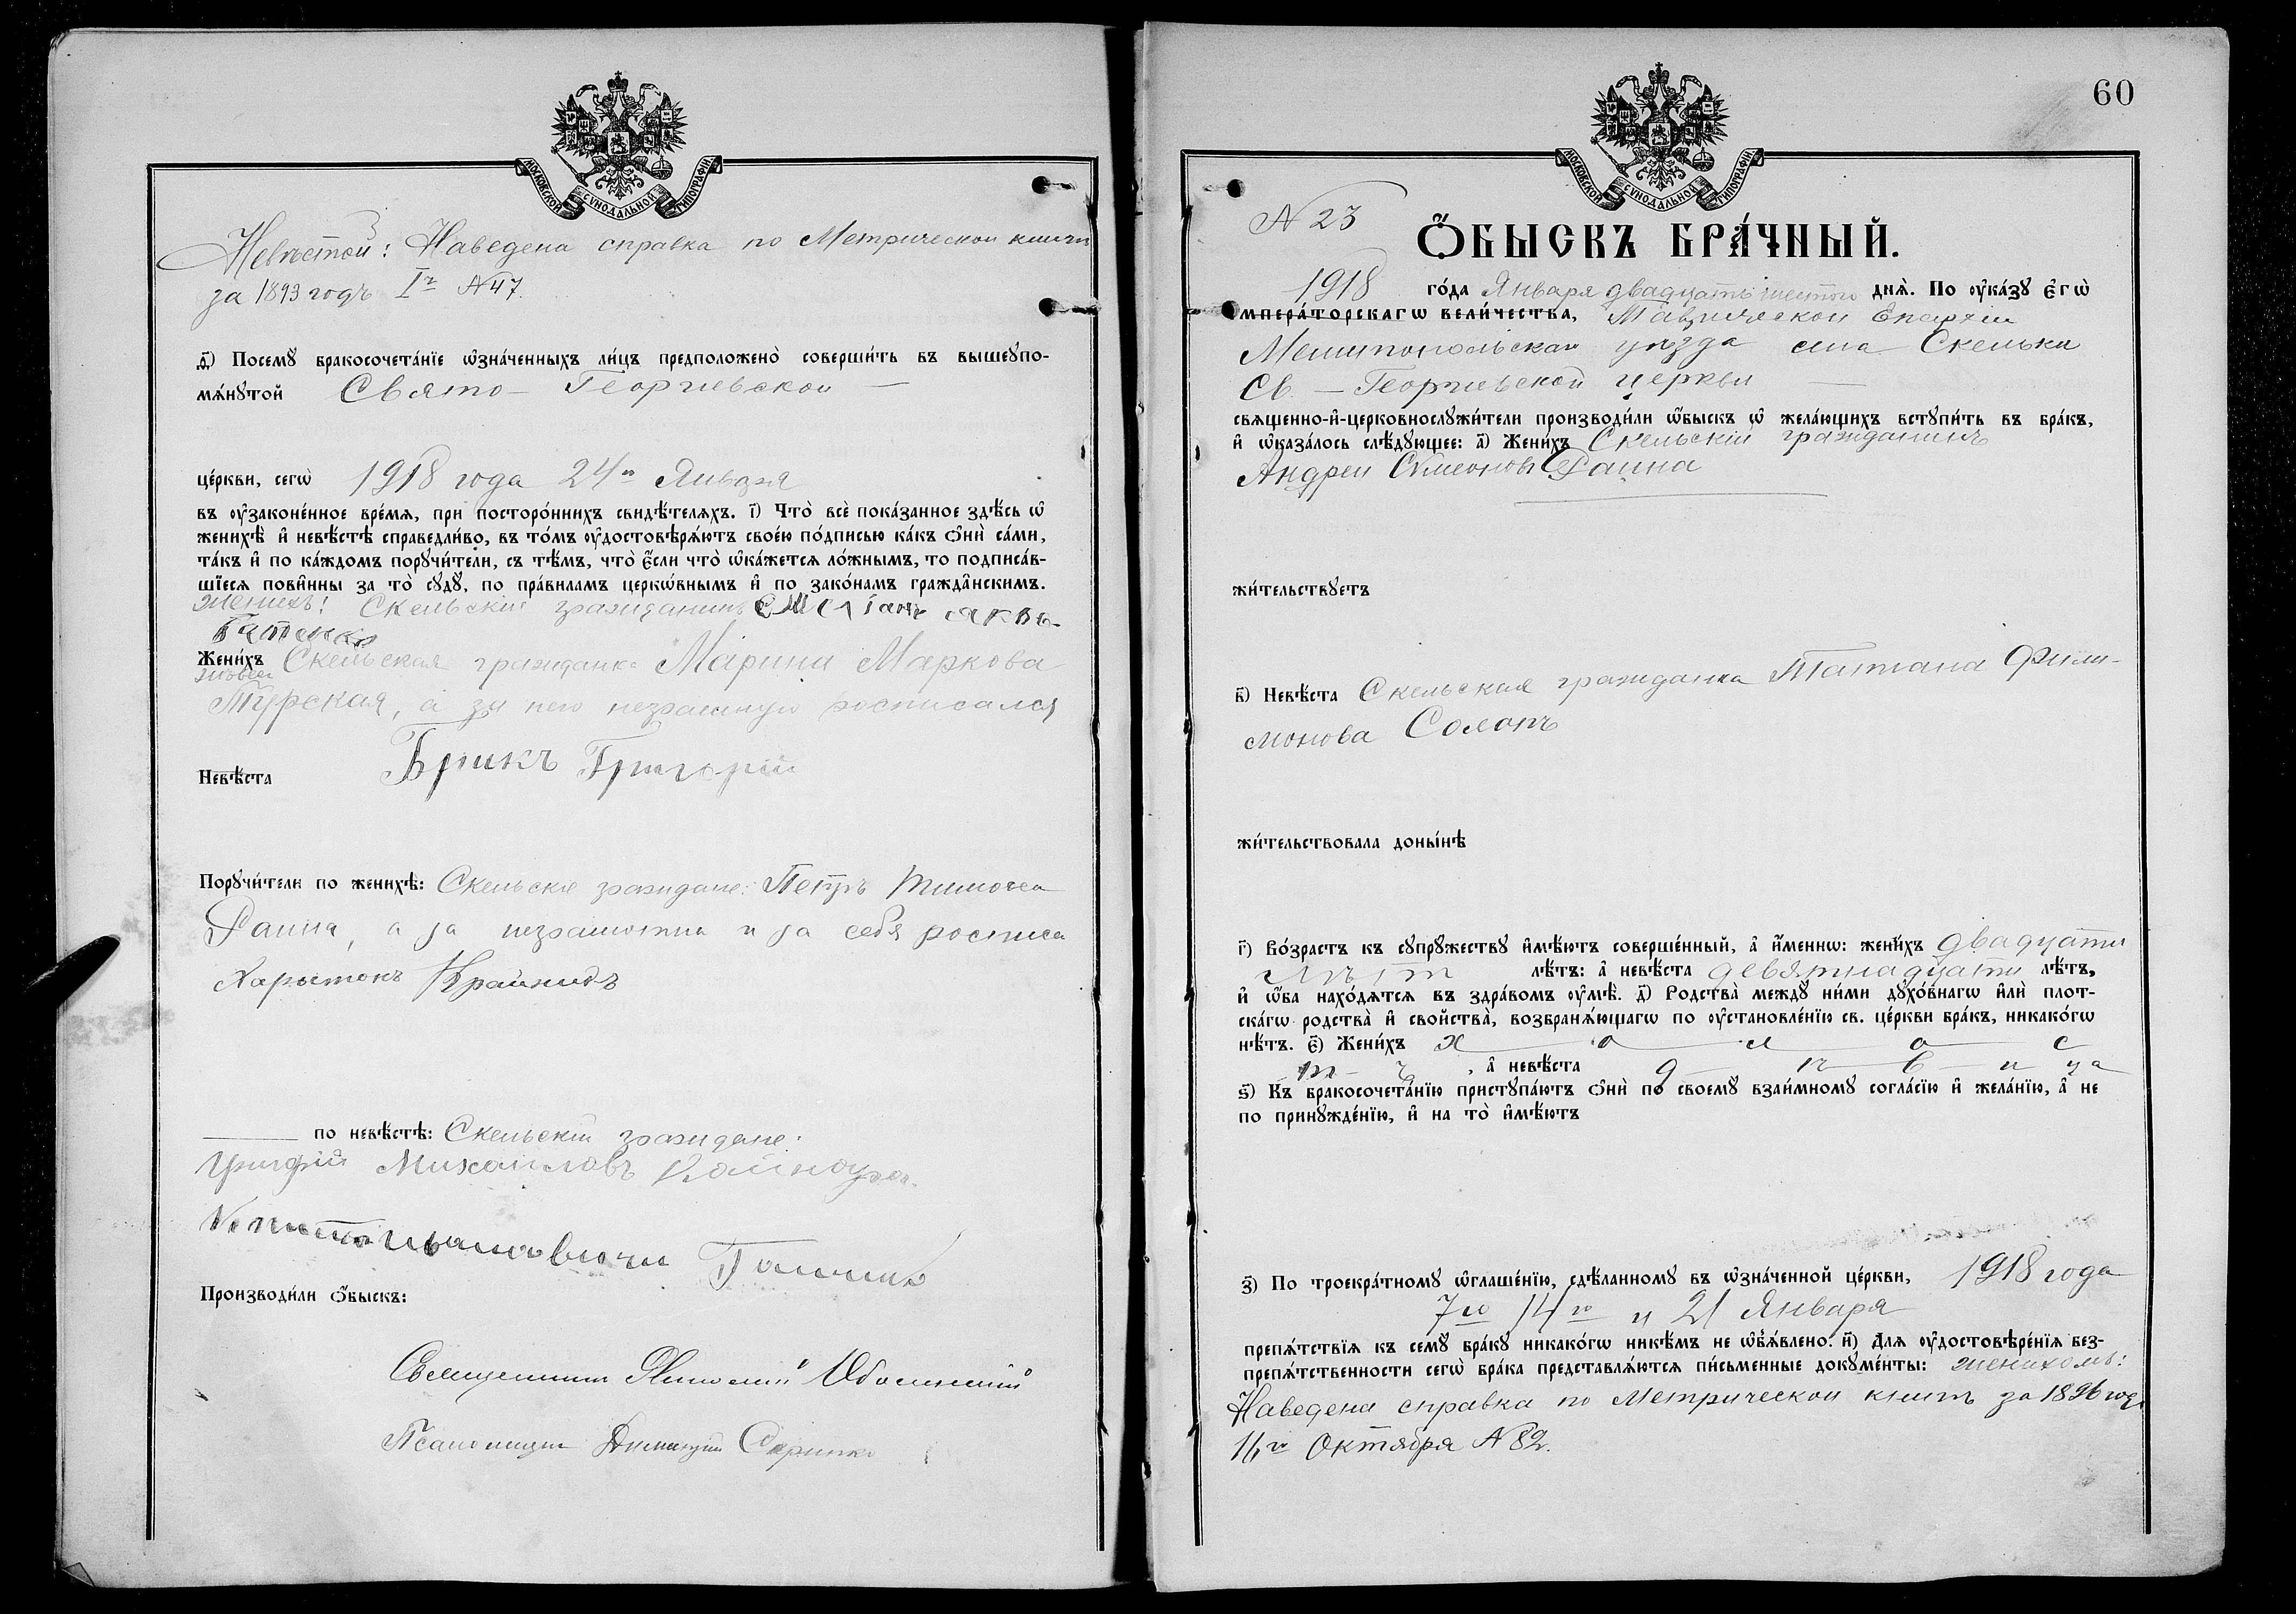 МОСКОВСКОЙ СѴНОДАЛЬНОЙ ТИПОГРАФІИ
Невѣстой: Наведена справка по Метрической книги
за 1893 годъ Iч N 47.
д҃і) Посемꙋ бракосочета́нїе ѡ҆зна́ченныхъ ли́цъ предположено̀ соверши́ть въ вышеꙋпо-
мѧ́нꙋтой Свято-Георгіевской
це́ркви, сегѡ̀ 1918 года 24го Января
въ ᲂу҆законе́нное вре́мѧ, при посторо́ннихъ свидѣ́телѧхъ. і҃) Что̀ всѐ пока́занное здѣ́сь ѡ҆
женихѣ̀ и҆ невѣ́стѣ справедли́во, въ то́мъ ᲂу҆достовѣрѧ́ютъ свое́ю по́дписью ка́къ ѻ҆нѝ са́ми,
та́къ и҆ по ка́ждомъ порꙋчи́тели, съ тѣ́мъ, что̀ є҆́сли что̀ ѡ҆ка́жетсѧ ло́жнымъ, то подписа́в-
шїесѧ пови́нны за то̀ сꙋдꙋ̀, по пра́виламъ церкѡ́внымъ и҆ по зако́намъ гражда́нскимъ.
женихъ: Скельский гражданинъ
Жени́хъ Скельская гражданка Марина Маркова
Турская, а за нею неграмотную росписался
Невѣ́ста Брикъ Григорій
Порꙋчи́тели по женихѣ̀: Скельскіе граждане: Петръ Тимофеев
Раина, а за неграмотна и за себя росписа
Харытонъ
по невѣ́стѣ: Скельскіи граждане:
Григорій Михаиловъ
Производи́ли ѻ҆́быскъ:
Священникъ
Псаломщикъ
60
МОСКОВСКОЙ СѴНОДАЛЬНОЙ ТИПОГРАФІИ
N 23
Ѻ҆́БЫСКЪ БРА́ЧНЫЙ.
1918 го́да Января двадцать шестого днѧ̀. По ᲂу҆ка́зꙋ є҆гѡ̀
и҆мпера́торскагѡ вели́чества, Таврической Епархіи
Мелитопольскаго уѣзда села Скельки
Св.-Георгіевской церкви
свѧщенно-и҆-церковнослꙋжи́тели производи́ли ѡ҆́быскъ ѡ҆ жела́ющихъ встꙋпи́ть въ бра́къ,
и҆ ѡ҆каза́лось слѣ́дꙋющее: а҃) Жени́хъ Скельскій гражданинъ
Андреи Симеоновъ Раина
жи́тельствꙋетъ
в҃) Невѣ́ста Скельская гражданка Татиана Фили-
монова Солопъ
жи́тельствовала доны́нѣ
г҃) Во́зрастъ къ сꙋпрꙋ́жествꙋ и҆мѣ́ютъ соверше́нный, а҆ и҆́меннѡ: жени́хъ двадцати
лѣтъ лѣ́тъ: а҆ невѣ́ста девятнадцати лѣ́тъ,
и҆ ѡ҆́ба нахо́дѧтсѧ въ здра́вомъ ᲂу҆мѣ̀. д҃) Родства̀ междꙋ̀ ни́ми дꙋхо́внагѡ и҆лѝ плот-
ска́гѡ родства̀ и҆ сво́йства̀, возбранѧ́ющагѡ по ᲂу҆становле́нїю св. це́ркви бра́къ, никако́гѡ
нѣ́тъ. є҃) Жени́хъ х о л о с
т ъ, а҆ невѣ́ста д ѣ в и ца
ѕ҃) Къ бракосочета́нїю пристꙋпа́ютъ ѻ҆нѝ по своемꙋ̀ взаи́мномꙋ согла́сїю и҆ жела́нїю, а҆ не
по принꙋжде́нїю, и҆ на то̀ и҆мѣ́ютъ
з҃) По троекра́тномꙋ ѡ҆глаше́нїю, сдѣ́ланномꙋ въ ѡ҆зна́ченной це́ркви, 1918 года
7го 14го и 21 Января
препѧ́тствїѧ къ семꙋ̀ бра́кꙋ никако́гѡ никѣ́мъ не ѡ҆бꙗ́влено. и҃) Длѧ ᲂу҆достовѣре́нїѧ без-
препѧ́тственности сегѡ̀ бра́ка представлѧ́ютсѧ пи́сьменные докꙋме́нты: женихомъ:
Наведена справка по Метрической книгѣ за 1896 год
16го Октября N 82.